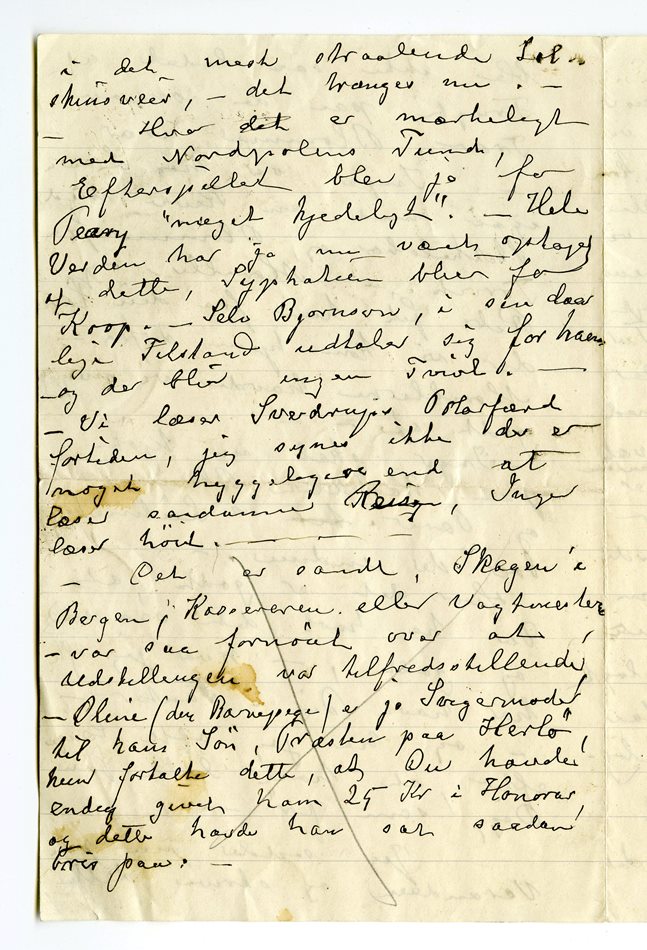 i det mest straalende Sol
skinsveir, – det trænges nu. –
– Hvor det er mærkeligt
med Nordpolens Fund,
Efterspillet blev jo for
Peary "meget kjedeligt". – Hele
Verden har jo nu været optaget
af dette, Syphatien blier for
Koop. – Selv Bjørnson, i sin daar
lige Tilstand udtaler sig for ham
– og der blir ingen Tvivl. –
– Vi læser Sverdrups Polarfærd
fortiden, jeg synes ikke der er
noget hyggeligere end at
læse saadanne Reiser, Inger
læser høit. – – – –
– Det er sandt, Skagen i
Bergen, Kassereren eller Vagtmester
– var saa fornöiet over at
Udstillingen var tilfredsstillende,
– Oline (den Barnepige) er jo Svigermoder
til hans Sön, Præsten paa Herlö,
hun fortalte dette, at Du havde
endog givet ham 25 Kr i Honorar,
og dette havde han sat saadan
Pris paa. –